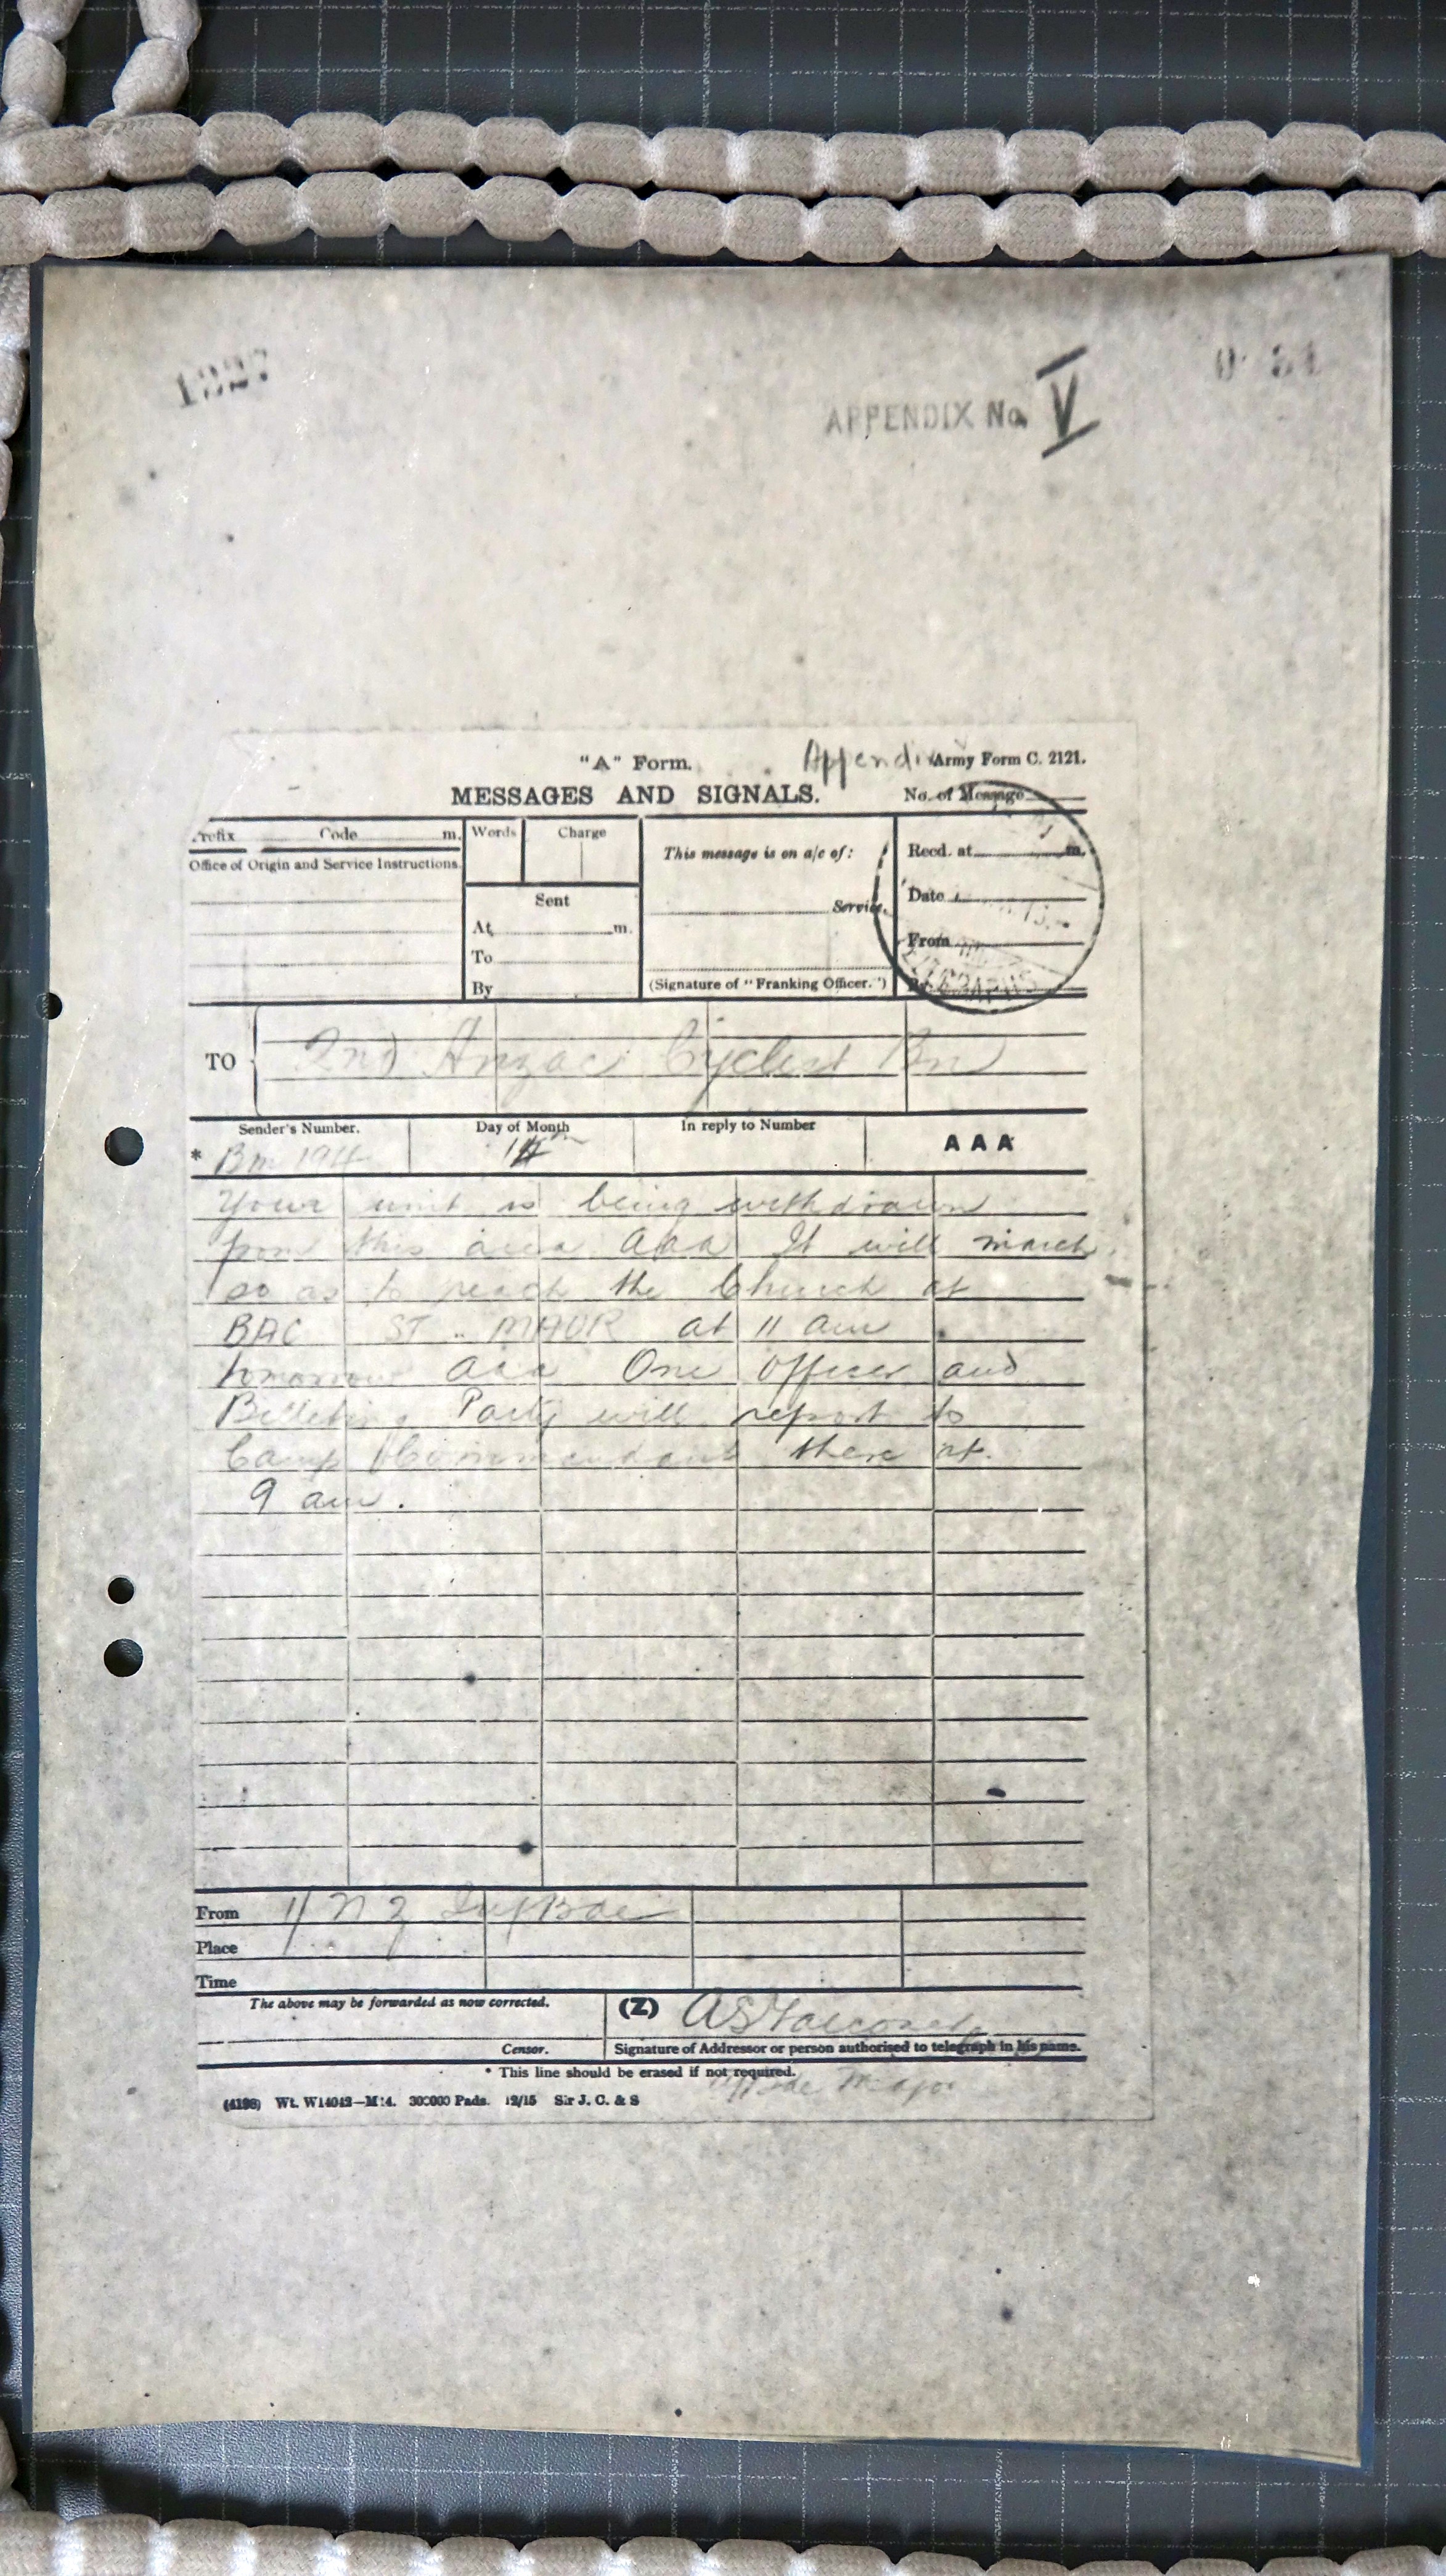 1327
APPENDIX No. V
"A" Form.
Appendix
Army Form C. 2121.
MESSAGES AND SIGNALS.
No. of Message
Prefix Code m.
Words Charge
This message is on a/c of:
Recd. at m.
Office of Origin and Service Instructions.
Sent
Service.
Date
At m.
From
To
By
(Signature of "Franking Officer.")
By
TO 2nd Anzac Cyclist Bn
Sender's Number. Day of Month In reply to Number AAA
* Bm 194 14th
Your unit is being withdrawn
from this area aaa It will march
so as to reach the Church at
BAC ST. MAUR at 11 am
tomorrow aaa One Officer and
Billeting Party will report to
Camp Commandant there at
9 am.
From 1/ N Z Inf Bde
Place
Time
The above may be forwarded as now corrected.
(Z)
Censor.
Signature of Addressor or person authorised to telegraph in his name.
* This line should be erased if not required.
Bde Major
(4198) Wt. W14042—M14. 300000 Pads. 12/15 Sir J. C. & S